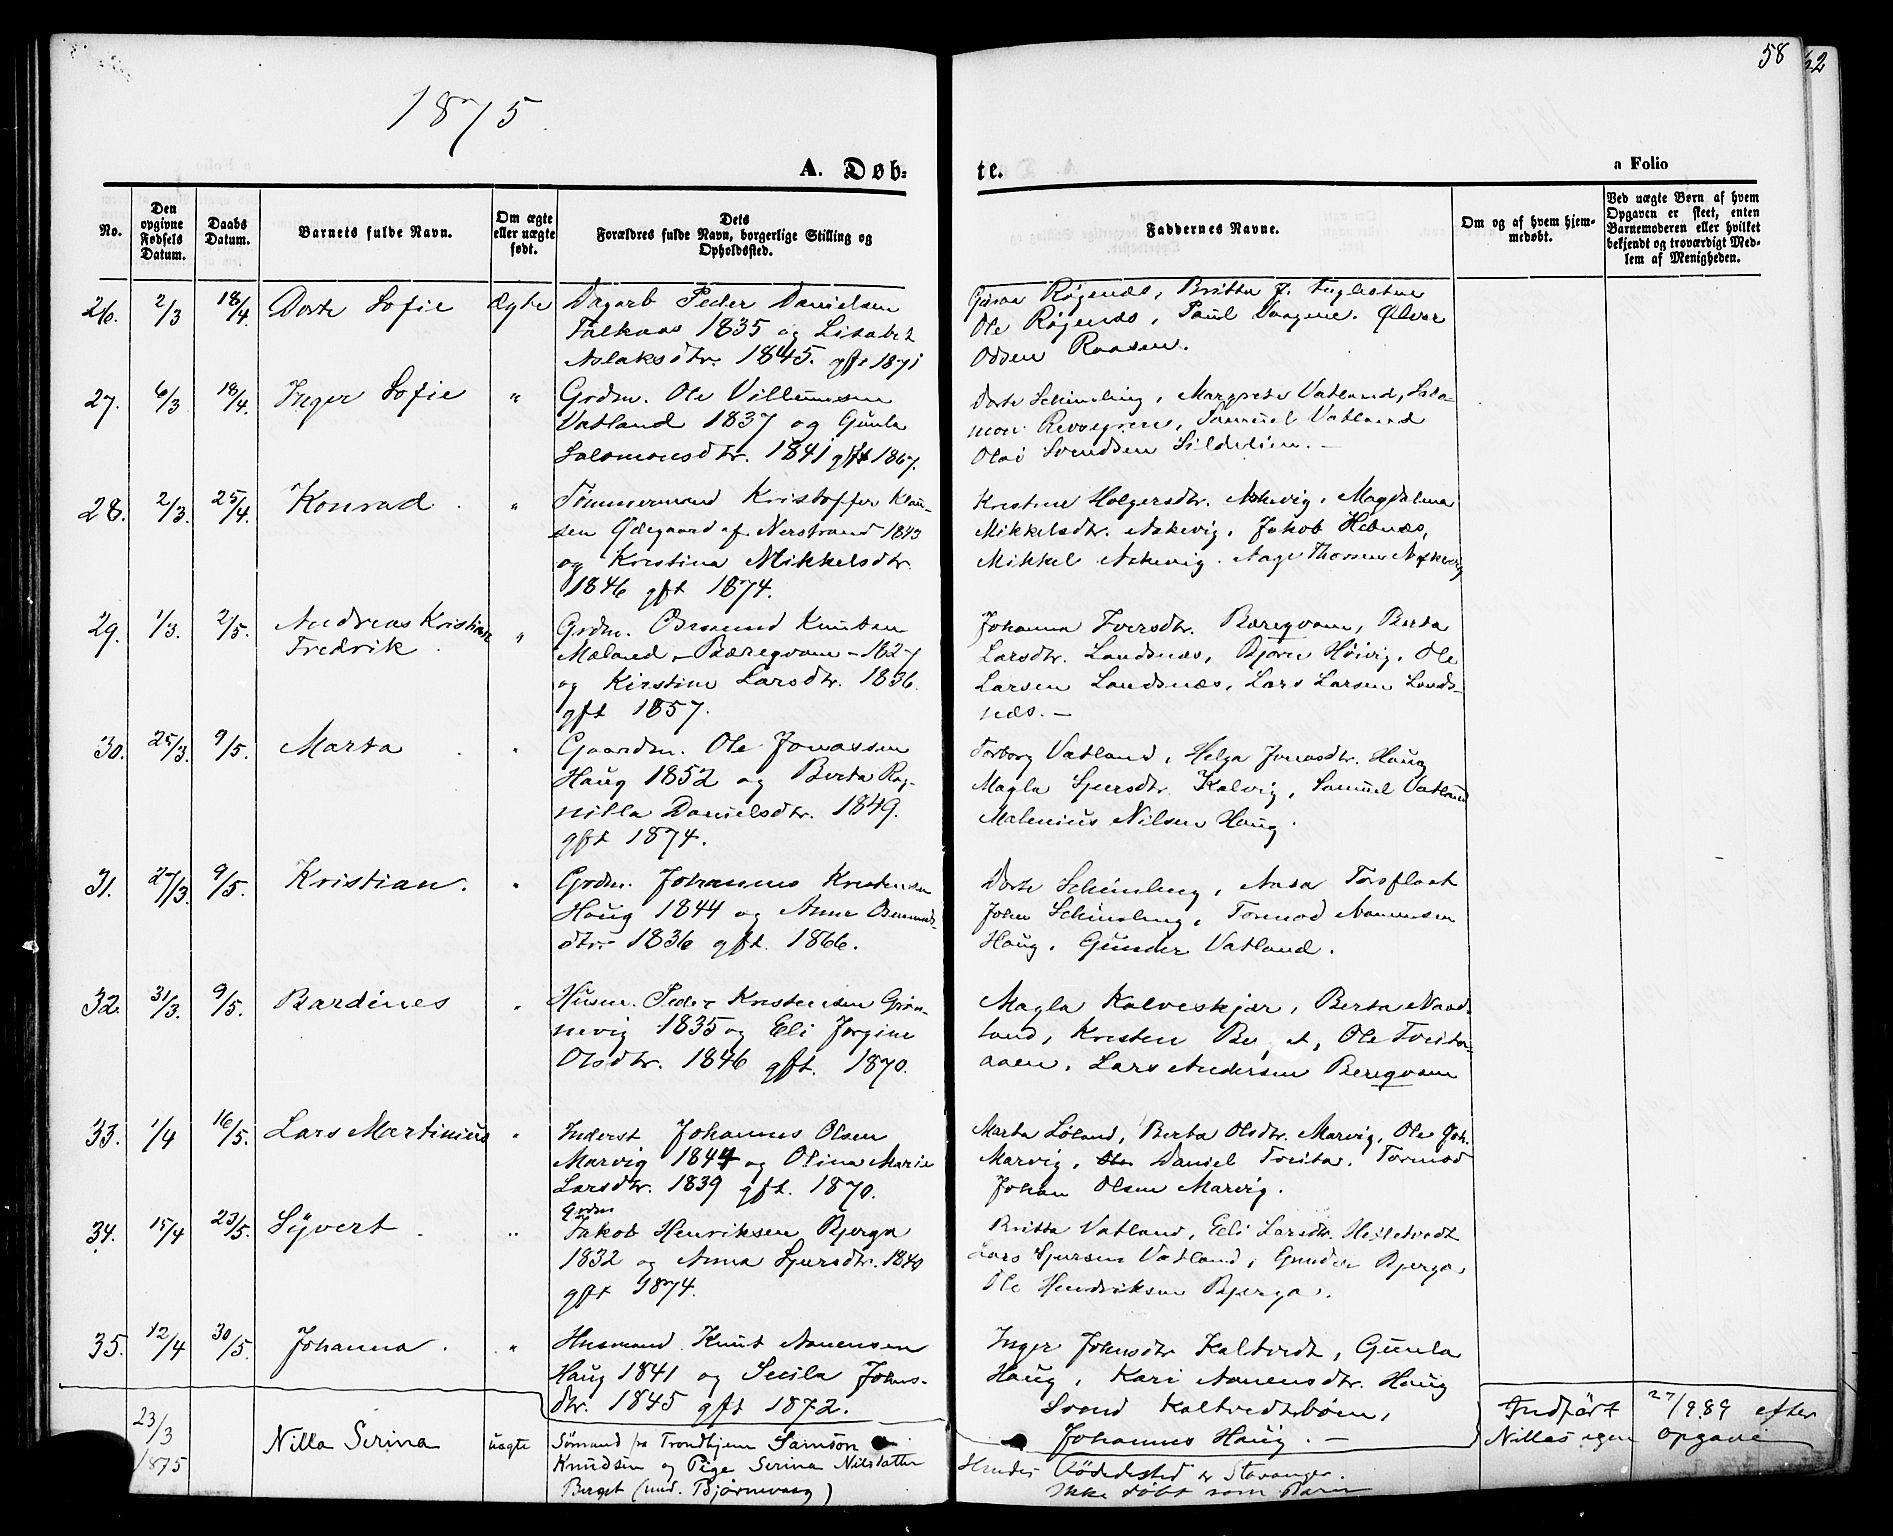 58
62
1875
A. Døb-
te.
a Folio
No.
Den opgivne Fødsels Datum.
Daabs Datum.
Barnets fulde Navn.
Om ægte eller uægte født.
Dets Forældres fulde Navn, borgerlige Stilling og Opholdssted.
Faddernes Navne.
Om og af hvem hjemmedøbt.
Ved uægte Børn af hvem Opgaven er skeet, enten Barnemoderen eller hvilket bekjendt og troværdigt Medlem af Menigheden.
26. 2/3 18/4. Dorte Sofie Ægte Dagarb Peder Danielsen
1835 og Lisabet
Aslaksdtr. 1845. gft 1871
Røgenæs, Britta
Ole Røgenæs, Paul Vaagene. Ølver
Odsen Raasen.
27. 6/3 18/4. Inger Sofie " Grdm. Ole Villumsen
Vatland 1837 og Gunla
Salomonsdtr. 1841 gft 1867.
Dorte Scheimling, Margrete Vatland, Salo-
mon Samuel Vatland
Svendsen
28. 2/3. 25/4. Konrad. " Tømmermand Kristoffer Klau-
sen Ødegaard af Nerstrand 1843
og Kristina Mikkelsdtr.
1846 gft 1874.
Kristine Holgersdtr. Askevig, Magdalena
Mikkelsdtr. Askevig, Jakob Hebnæs,
Mikkel Askevig. Aage Thorsen Askevig
29. 1/3. 2/5. Andreas Kristian
Fredrik. " Grdm. Osmund Knutsen
Mæland - Bæregvam - 1827
og Kirstine Larsdtr. 1836.
gft 1857.
Johanna Iversdtr. Bæregvam, Berta
Larsdtr. Landsnæs, Bjørn Høivig, Ole
Larsen Landsnæs, Lars Larsen Lands-
næs. -
30. 25/3. 9/5. Marta. " Gaardm. Ole Jonassen
Haug 1852 og Berta Rag-
nilla Danielsdtr. 1849.
gft 1874.
Torborg Vatland, Helga Jonasdtr. Haug
Magla Sjursdtr. Kalvig, Samuel Vatland
Malenius Nilsen Haug.
31. 27/3. 9/5. Kristian. " Grdm. Johannes Kristensen
Haug 1844 og Anne Osmunds-
dtr. 1836 gft. 1866.
Dorte Scheimling, Anna Torsflaat
John Scheimling, Tormod Aanensen
Haug, Gunder Vatland.
32. 31/3. 9/5. Bardines " Husm. Peder Kristensen Grøn-
nevig 1835 og Eli Jørgine
Olsdtr. 1846 gft. 1870.
Magla Kalveskjær, Berta Naad-
land, Kristen Ole Tveita-
aaen, Lars Andersen Beregvam
33. 1/4 16/5. Lars Martinius " Inderst Johannes Olsen
Marvig 1844 og Olina Marie
Larsdtr. 1839 gft. 1870.
Marta Løland, Berta Olsdtr. Marvig, Ole Joh.
Marvig, Daniel Tveita. Tormod
Johan Olsen Marvig.
34. 15/4 23/5. Syvert. " Grdm
Jakob Henriksen Bjerga
1832 og Anna Sjursdtr. 1840
gft 1874.
Britta Vatland, Eli Larsdtr.
Lars Sjursen Vatland, Gunder Bjerga,
Ole Hendriksen Bjerga.
35. 12/4 30/5. Johanna. " Husmand Knut Aanensen
Haug 1841 og Secila Johns-
dtr. 1845 gft 1872.
Inger Johnsdtr Kaltvedt, Gunla
Haug, Kari Aanensdtr. Haug
Svend Kaltvedtbøen,
Johannes Haug. -
23/3
1875 Nilla Serina uægte Sømand fra Trondhjem Samson
Knudsen og Pige Serina Nilsdatter
Berget (med. Bjørnevaag)
Hendes Fødested er Stavanger.
Ikke døbt som Barn
Indført 27/9 89 efter
Nillas egen Opgave